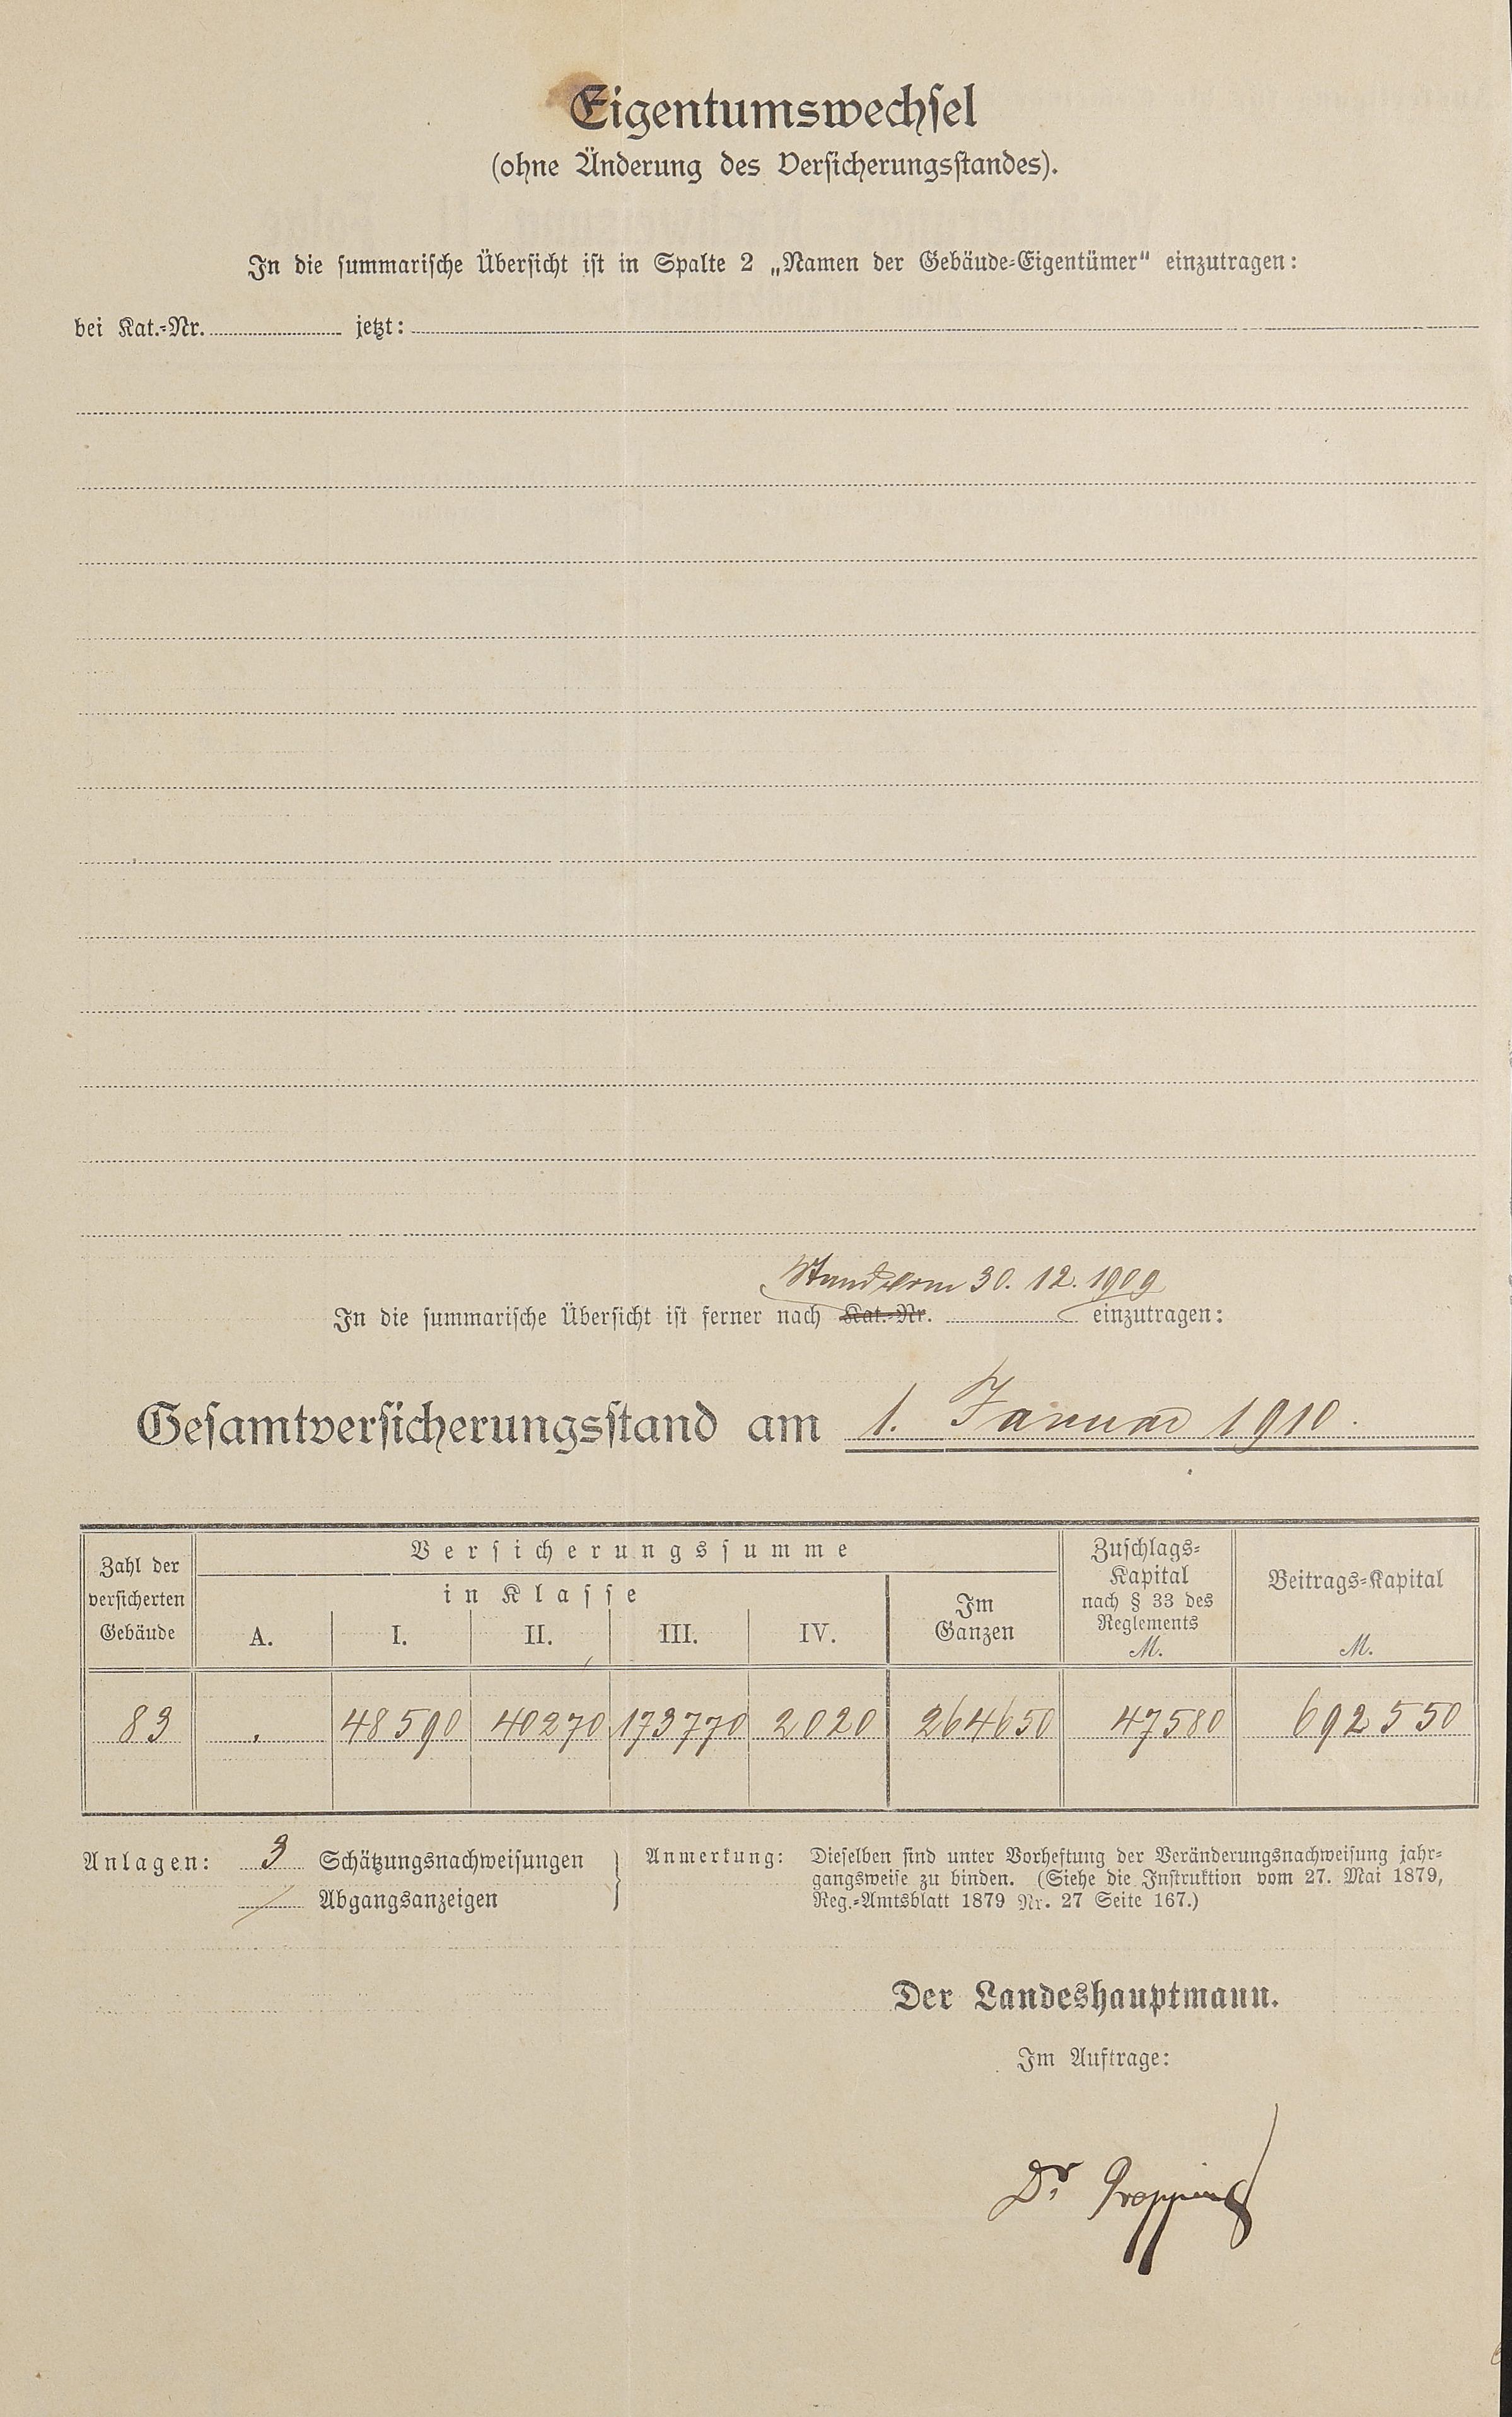 Eigentumswechsel
(ohne Änderung des Versicherungsstandes).
In die summarische Übersicht ist in Spalte 2 „Namen der Gebäude-Eigentümer“ einzutragen:
bei Kat.-Nr. jetzt:
Stand vom 30. 12. 1909
In die summarische Übersicht ist ferner nach Kat.-Nr. einzutragen:
Gesamtversicherungsstand am 1. Januar 1910.
Zahl der versicherten Gebäude
Versicherungssumme
in Klasse
A. I. II. III. IV.
Im Ganzen
Zuschlags-Kapital nach § 33 des Reglements M.
Beitrags-Kapital M.
83 . 48590 40270 173770 2020 264650 47580 692550
Anlagen: 3 Schätzungsnachweisungen
/ Abgangsanzeigen
Anmerkung: Dieselben sind unter Vorheftung der Veränderungsnachweisung jahr-
gangsweise zu binden. (Siehe die Instruktion vom 27. Mai 1879,
Reg.-Amtsblatt 1879 Nr. 27 Seite 167.)
Der Landeshauptmann.
Im Auftrage:
Dr